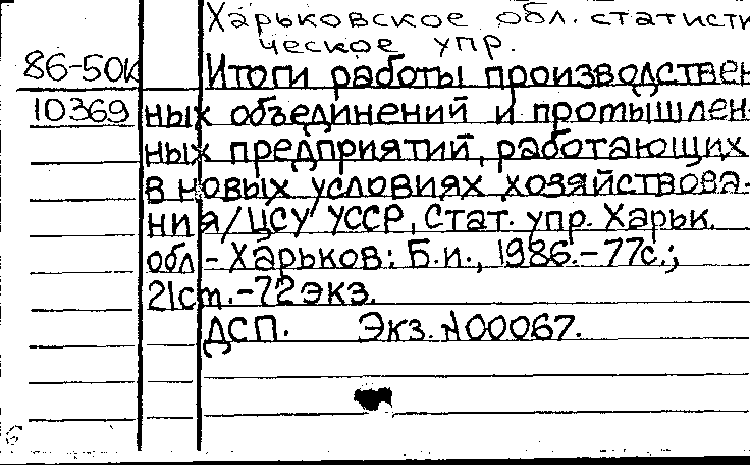 Харьковское обл. статисти
ческое упр.
86-50к Итоги работы производствен
10369 ных объединений и промышлен-
ных предприятий, работающих
в новых условиях хозяйствова-
ния/ЦСУ УССР, Стат. упр. Харьк.
обл - Харьков: Б.и., 1986.-77с.;
21ст.-72экз.
ДСП. Экз. №00067.
6